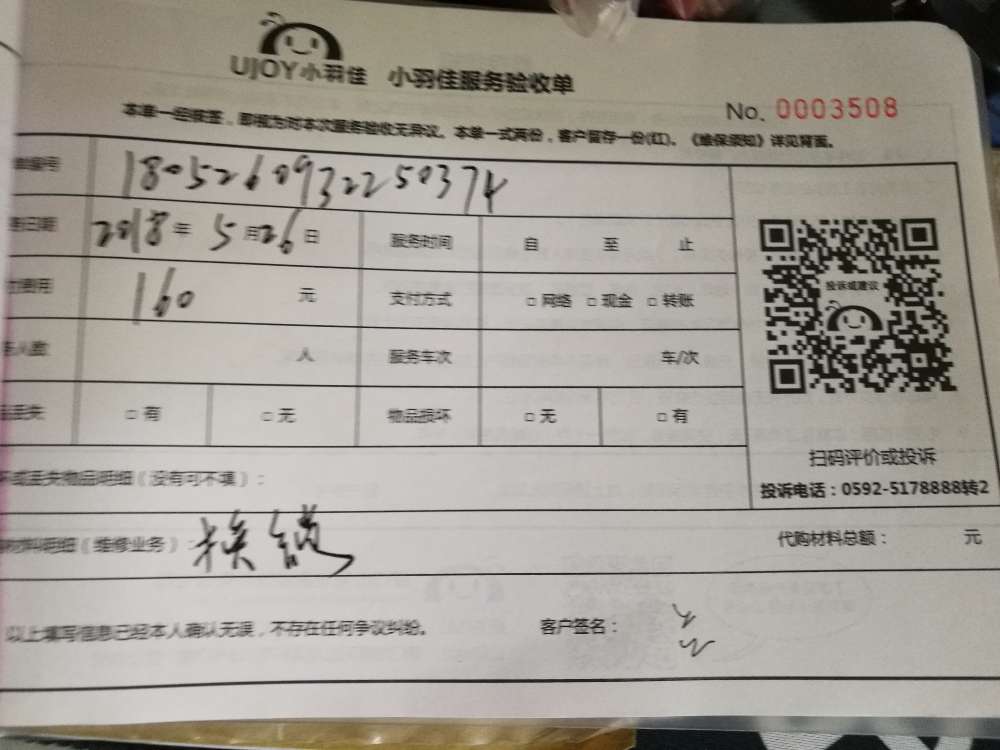 UJOY小羽佳 小羽佳服务验收单
No. 0003508
本单一经接签，即视为对本次服务验收无异议。本单一式两份，客户留存一份(红)。《维保须知》详见背面。
单编号 1805260932250374
日期 2018年 5月26日 服务时间 自 至 止
费用 160 元 支付方式 □网络 □现金 □转账
人数 人 服务车次 车/次
丢失 □有 □无 物品损坏 □无 □有
投诉或建议
扫码评价或投诉
投诉电话：0592-5178888转2
坏或丢失物品明细（没有可不填）：
材料明细（维修业务）：换锁 代购材料总额： 元
以上填写信息已经本人确认无误，不存在任何争议纠纷。 客户签名：